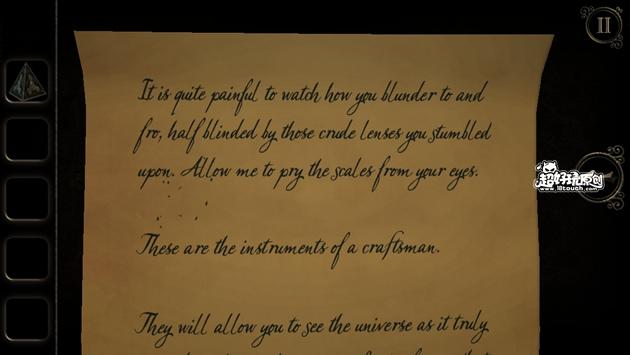 It is quite painful to watch how you blunder to and
fro, half blinded by those crude lenses you stumbled
upon. Allow me to pry the scales from your eyes.
These are the instruments of a craftsman.
They will allow you to see the universe as it truly
II
超好玩原创
www.18touch.com